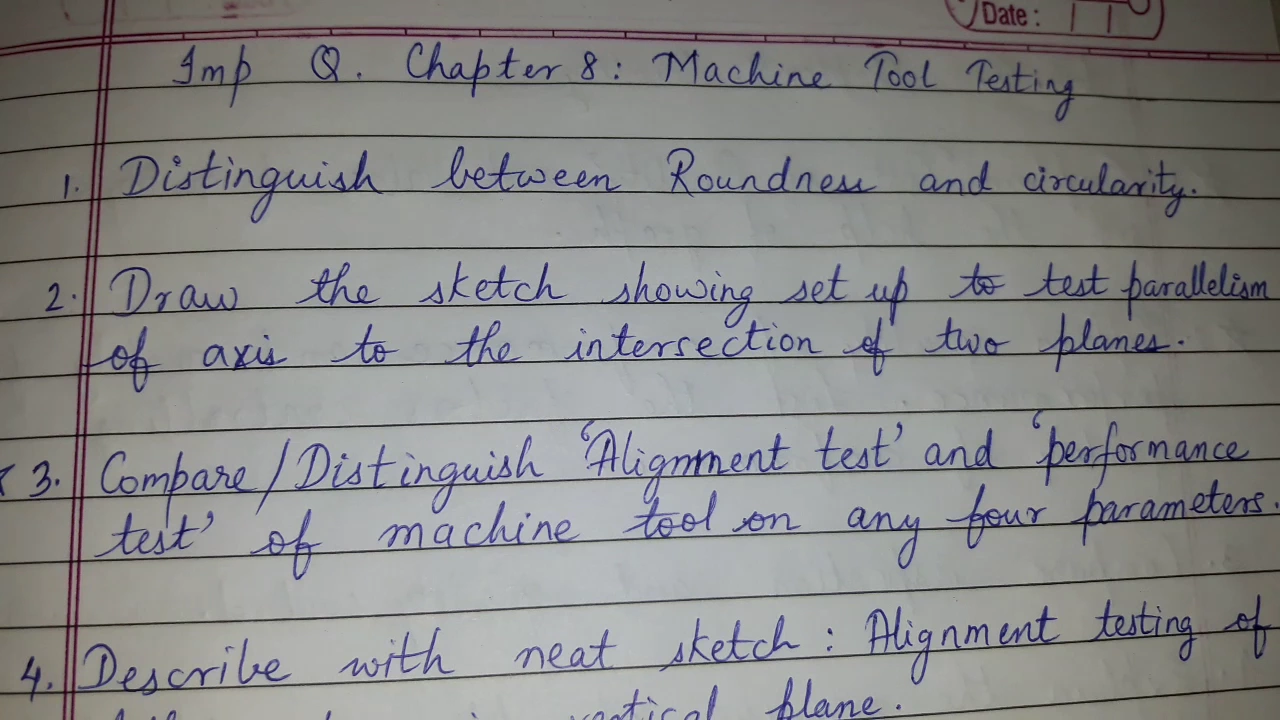 Date :
Imp Q. Chapter 8: Machine Tool Testing
1. Distinguish between Roundness and circularity.
2. Draw the sketch showing set up to test parallelism
of axis to the intersection of two planes.
3. Compare/Distinguish 'Alignment test' and 'performance
test' of machine tool on any four parameters.
4. Describe with neat sketch: Alignment testing of
vertical plane.